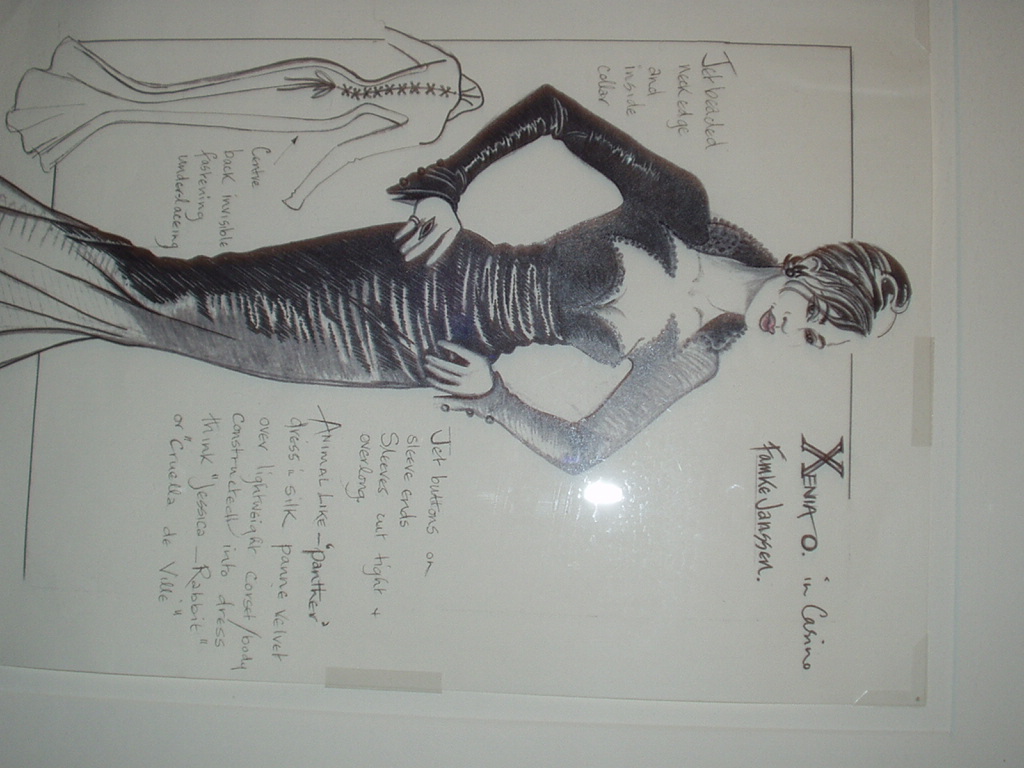 XENIA O. in Casino
Famke Janssen.
Jet beaded
neck edge
and
inside
collar
Centre
back invisible
fastening
underlacing
Jet buttons on
sleeve ends
Sleeves cut tight +
overlong.
ANIMAL LIKE - "panther"
dress in silk panne velvet
over lightweight corset/body
constructed into dress
think "Jessica - Rabbit"
or "Cruella de Ville"